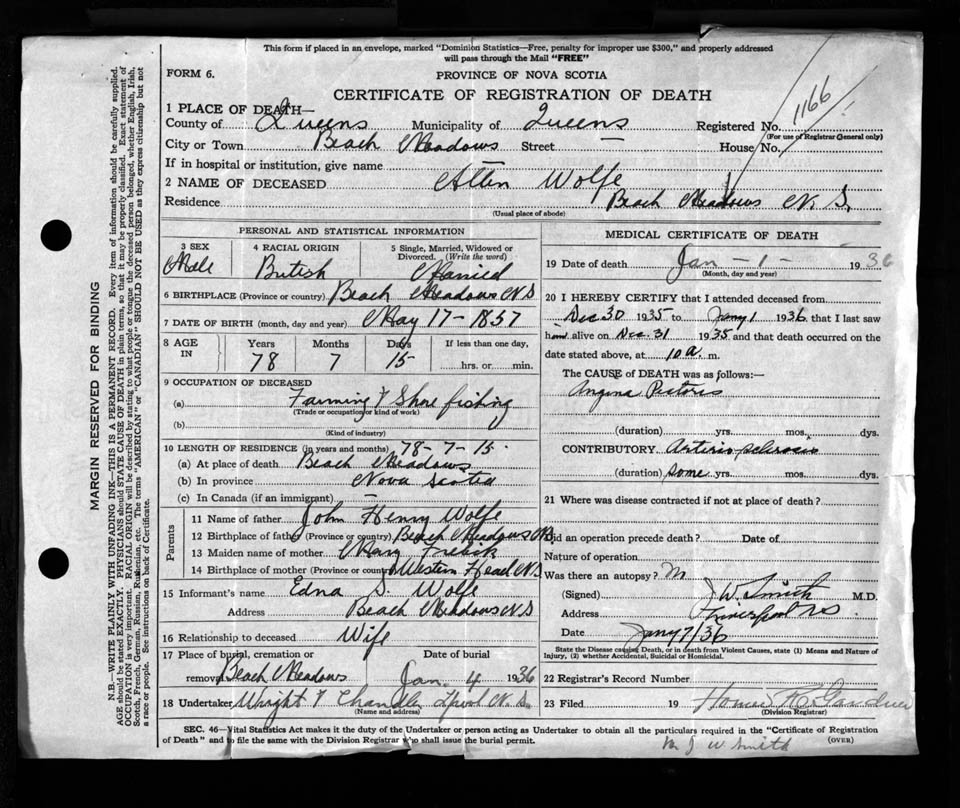 This form if placed in an envelope, marked "Dominion Statistics—Free, penalty for improper use $300," and properly addressed
will pass through the Mail "FREE"
FORM 6.
PROVINCE OF NOVA SCOTIA
CERTIFICATE OF REGISTRATION OF DEATH
1166
1 PLACE OF DEATH—
County of Queens Municipality of Queens Registered No.
(For use of Registrar General only)
City or Town Beach Meadows Street — House No.
If in hospital or institution, give name —
2 NAME OF DECEASED Wolfe
Residence Beach Meadows N.S.
(Usual place of abode)
PERSONAL AND STATISTICAL INFORMATION
3 SEX Male
4 RACIAL ORIGIN British
5 Single, Married, Widowed or Divorced. (Write the word) Married
6 BIRTHPLACE (Province or country) Beach Meadows N.S
7 DATE OF BIRTH (month, day and year) May 17-1857
8 AGE IN Years 78 Months 7 Days 15 If less than one day, ......hrs. or ......min.
9 OCCUPATION OF DECEASED
(a) Farming & Shore fishing
(Trade or occupation or kind of work)
(b)
(Kind of industry)
10 LENGTH OF RESIDENCE (in years and months) 78-7-15.
(a) At place of death Beach Meadows
(b) In province Nova Scotia
(c) In Canada (if an immigrant) —
Parents
11 Name of father John Henry Wolfe
12 Birthplace of father (Province or country) Beach Meadows N.S.
13 Maiden name of mother Mary
14 Birthplace of mother (Province or country) Western Head N.S
15 Informant's name Edna S. Wolfe
Address Beach Meadows N.S
16 Relationship to deceased Wife
17 Place of burial, cremation or removal Beach Meadows
Date of burial Jan. 4 1936
18 Undertaker Wright & Chandler L'pool N.S.
(Name and address)
MEDICAL CERTIFICATE OF DEATH
19 Date of death Jan - 1 - 1936
(Month, day and year)
20 I HEREBY CERTIFY that I attended deceased from
Dec 30 1935 to Jany 1 1936 that I last saw
him alive on Dec 31 1935 and that death occurred on the
date stated above, at 10 a. m.
The CAUSE of DEATH was as follows:—
Angina Pectoris
(duration) yrs. mos. dys.
CONTRIBUTORY. Arterio sclerosis
(duration) some yrs. mos. dys.
21 Where was disease contracted if not at place of death?
Did an operation precede death? Date of
Nature of operation
Was there an autopsy?
(Signed) J W Smith M.D.
Address Liverpool NS
Date Jany 7/36
State the Disease causing Death, or in death from Violent Causes, state (1) Means and Nature of
Injury, (2) whether Accidental, Suicidal or Homicidal.
22 Registrar's Record Number
23 Filed 19
(Division Registrar)
SEC. 46—Vital Statistics Act makes it the duty of the Undertaker or person acting as Undertaker to obtain all the particulars required in the "Certificate of Registration
of Death" and to file the same with the Division Registrar who shall issue the burial permit. (OVER)
J W Smith
MARGIN RESERVED FOR BINDING
N.B.—WRITE PLAINLY WITH UNFADING INK—THIS IS A PERMANENT RECORD. Every item of information should be carefully supplied.
AGE should be stated EXACTLY. PHYSICIANS should STATE CAUSE OF DEATH in plain terms, so that it may be properly classified. Exact statement of
OCCUPATION is very important. RACIAL ORIGIN will be described by stating to what people or tongue the deceased person belonged, whether English, Irish,
Scotch, French, German, Russian, Ruthenian, etc. The terms "AMERICAN" or "CANADIAN" SHOULD NOT BE USED as they express citizenship but not
a race or people. See instructions on back of Certificate.